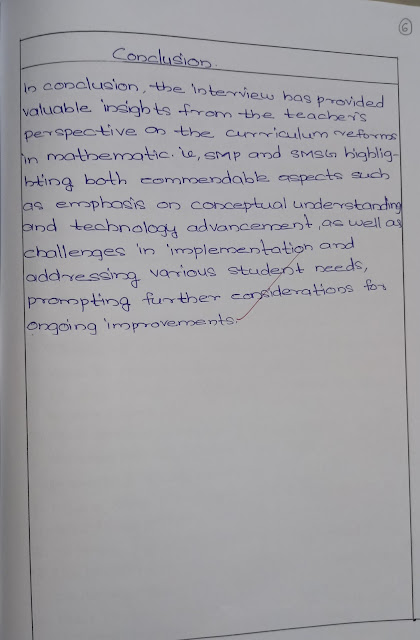 6
Conclusion.
In conclusion, the interview has provided
valuable insights from the teacher's
perspective on the curriculum reforms
in mathematic. ie, SMP and SMSG highlig-
hting both commendable aspects such
as emphasis on conceptual understanding
and technology advancement, as well as
challenges in implementation and
addressing various student needs,
prompting further considerations for
ongoing improvements.